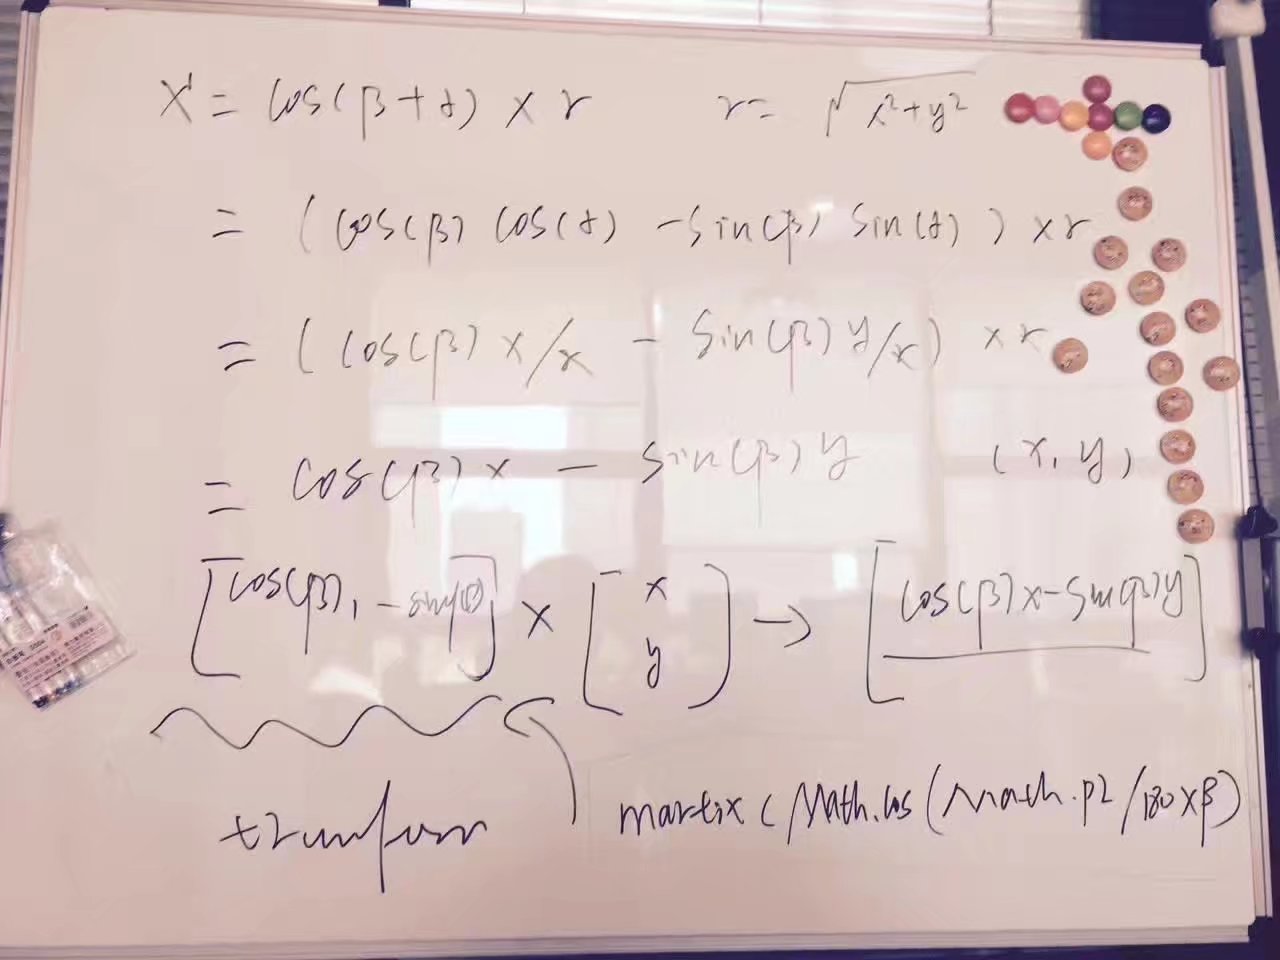 x' = cos(β+α) × r r = √x²+y²
= (cos(β) cos(α) - sin(β) sin(α)) × r
= (cos(β) x/r - sin(β) y/r) × r
= cos(β) x - sin(β) y (x, y)
[cos(β), -sin(β)] × [x y] → [cos(β)x-sin(β)y]
transform
martix (Math.cos (Math.PI/180×β)